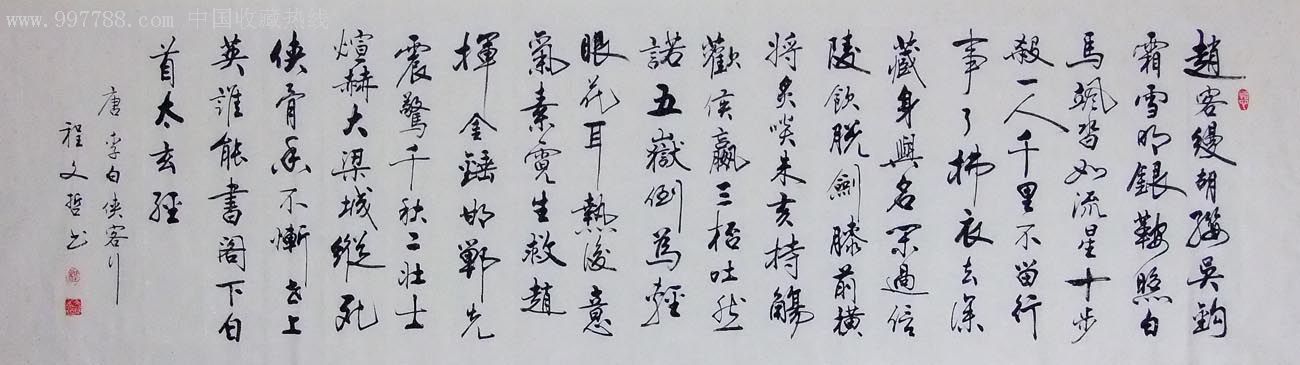 www.997788.com 中国收藏热线
趙客縵胡纓吳鉤
霜雪明銀鞍照白
馬颯沓如流星十步
殺一人千里不留行
事了拂衣去深
藏身與名閑過信
陵飲脫劍膝前橫
將炙啖朱亥持觴
勸侯嬴三杯吐然
諾五嶽倒為輕
眼花耳熱後意
氣素霓生救趙
揮金鎚邯鄲先
震驚千秋二壯士
煊赫大梁城縱死
俠骨香不慚世上
英誰能書閣下白
首太玄經
唐李白俠客行
程文哲书